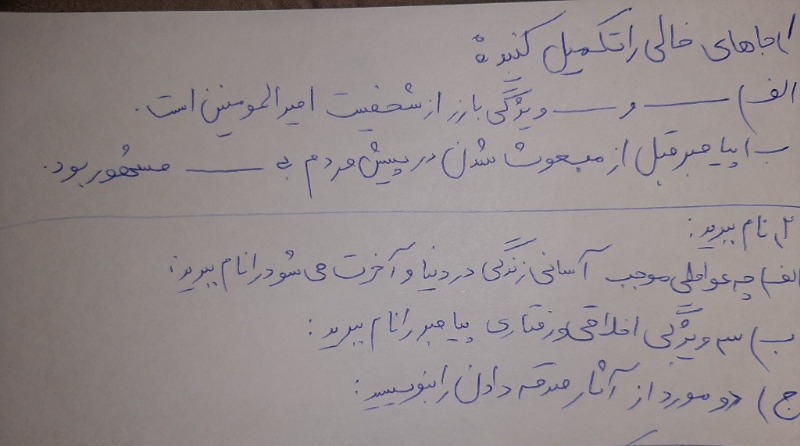 ۱) جاهای خالی را تکمیل کنید:
الف) ــــ و ــــ ویژگی بارز از شخصیت امیرالمومنین است.
ب) پیامبر قبل از مبعوث شدن در پیش مردم به ــــ مشهور بود.
۲) نام ببرید:
الف) چه عواملی موجب آسانی زندگی در دنیا و آخرت می شود را نام ببرید:
ب) ۳ ویژگی اخلاقی و رفتاری پیامبر را نام ببرید:
ج) دو مورد از آثار صدقه دادن را بنویسید: